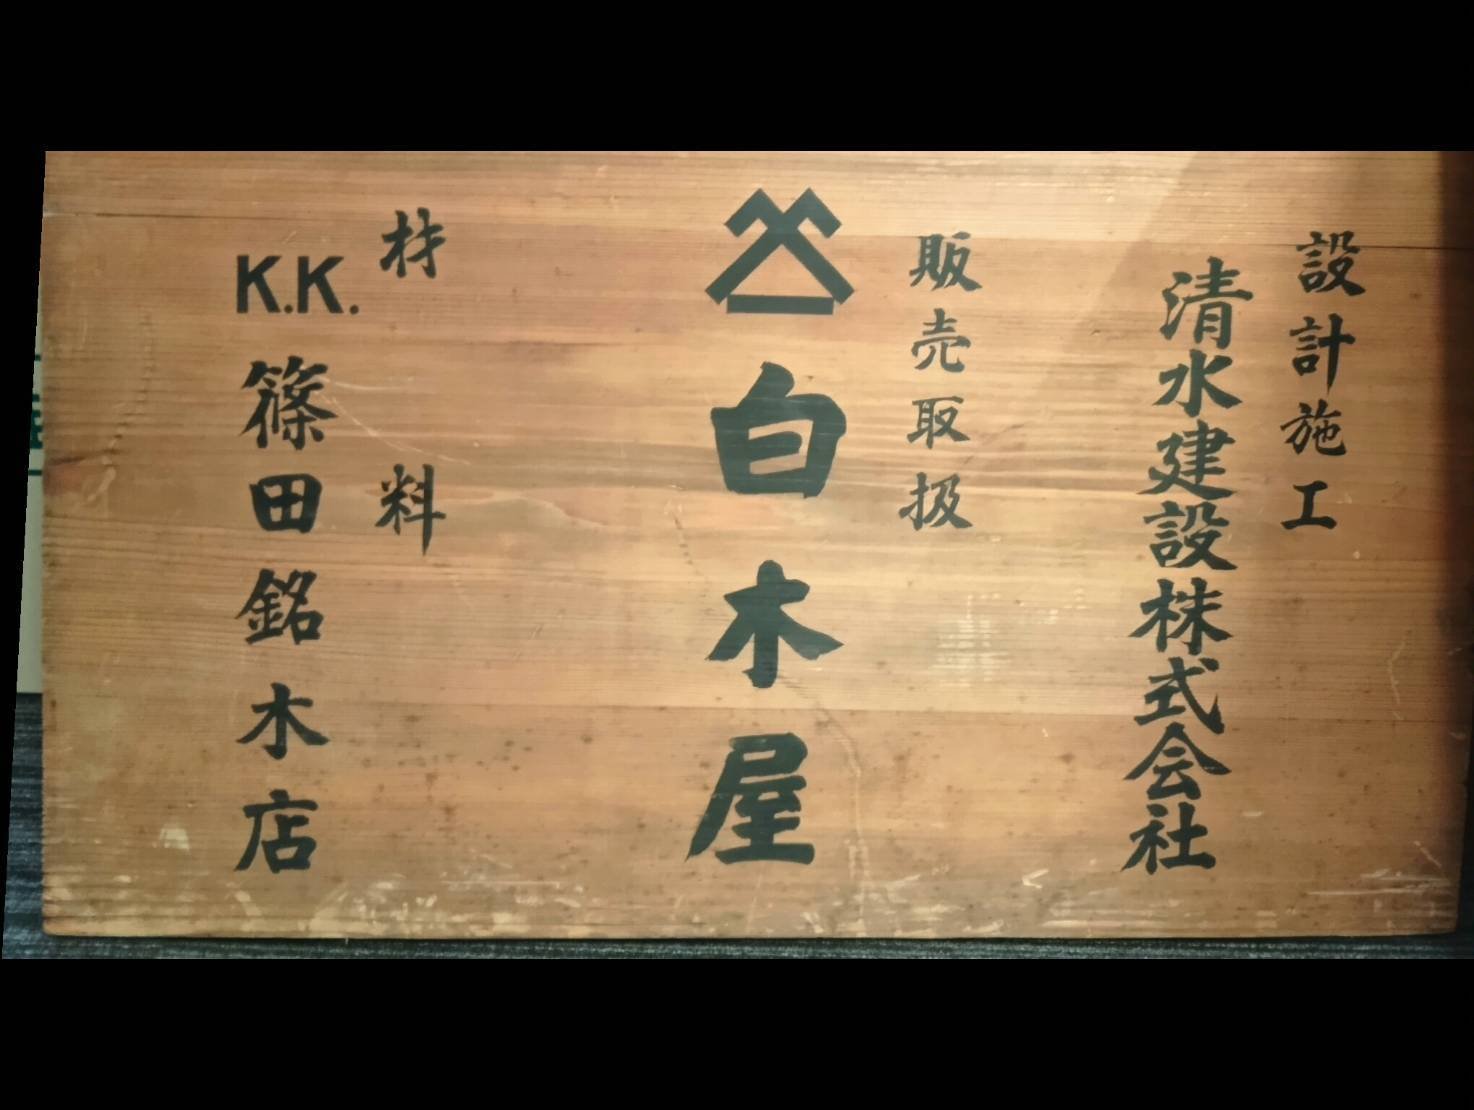 設計施工
清水建設株式会社
販売取扱
白木屋
材料
K.K.篠田銘木店